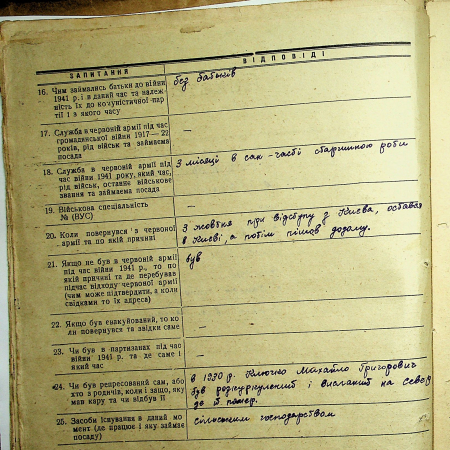 ЗАПИТАННЯ
ВІДПОВІДІ
16. Чим займались батьки до війни
1941 р. і в даний час та належ-
ність їх до комуністичної пар-
тії і з якого часу
без батьків
17. Служба в червоній армії під час
громадянської війни 1917—22
років, рід військ та займаєма
посада
—
18. Служба в червоній армії під
час війни 1941 року, який час,
рід військ, остання військове
звання та займаєма посада
3 місяці в сан-часті старшиною роти
19. Військова спеціальність
№ (ВУС)
—
20. Коли повернувся з червоної
армії та по якій причині
З жовтня при відступу з Києва, остався
в Києві, а потім пішов додому.
21. Якщо не був в червоній армії
під час війни 1941 р., то по
якій причині та де перебував
підчас відходу червоної армії
(чим може підтвердити, а коли
свідками то їх адреса)
був
22. Якщо був евакуйований, то ко-
ли повернувся та звідки саме
—
23. Чи був в партизанах під час
війни 1941 р. та де саме і
який час
—
24. Чи був репресований сам, або
хто з родичів, коли і защо, яку
мав кару та чи відбув її
в 1930 р. Ключко Михайло Григорович
був розкуркулений і висланий на север
де й помер.
25. Засоби існування в даний мо-
мент (де працює і яку займає
посаду)
сільським господарством